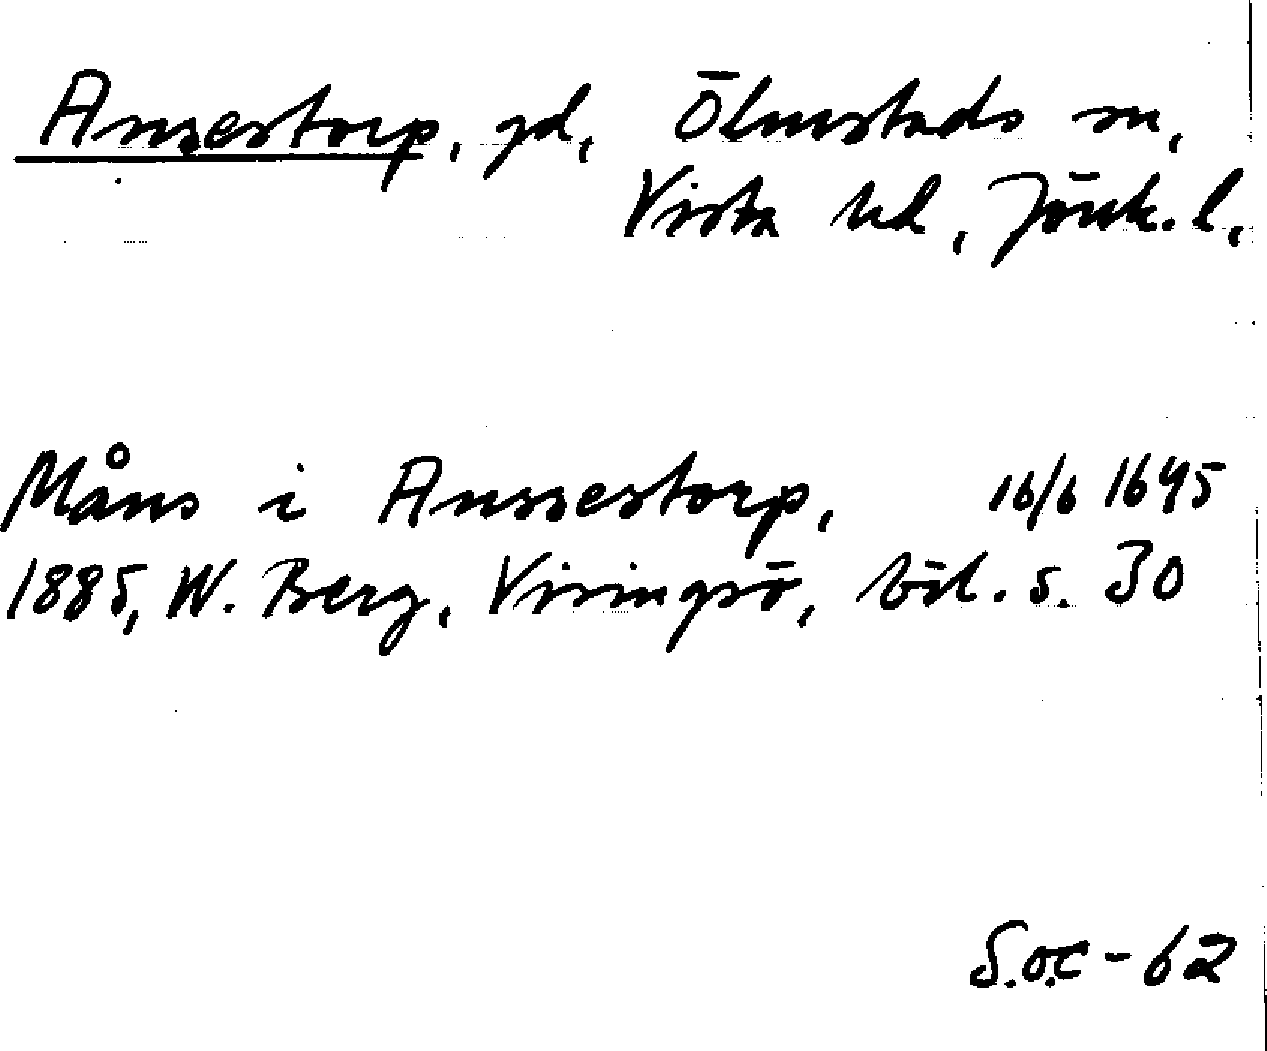 Ansestorp, gd, Ölmstads sn,
Vista hd, Jönk. l.
Måns i Anssestorp, 16/6 1645
1885, W. Berg, Visingsö, bil. s. 30
S.O.C - 62